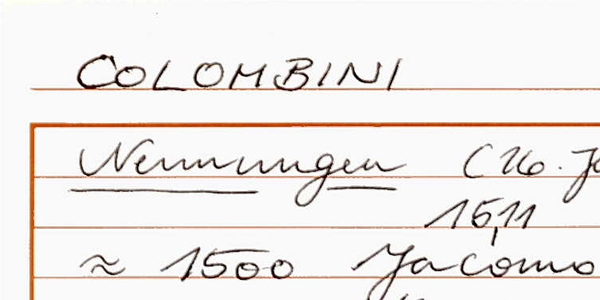 COLOMBINI
Nennungen (16. J
1511
≈ 1500 Jacomo